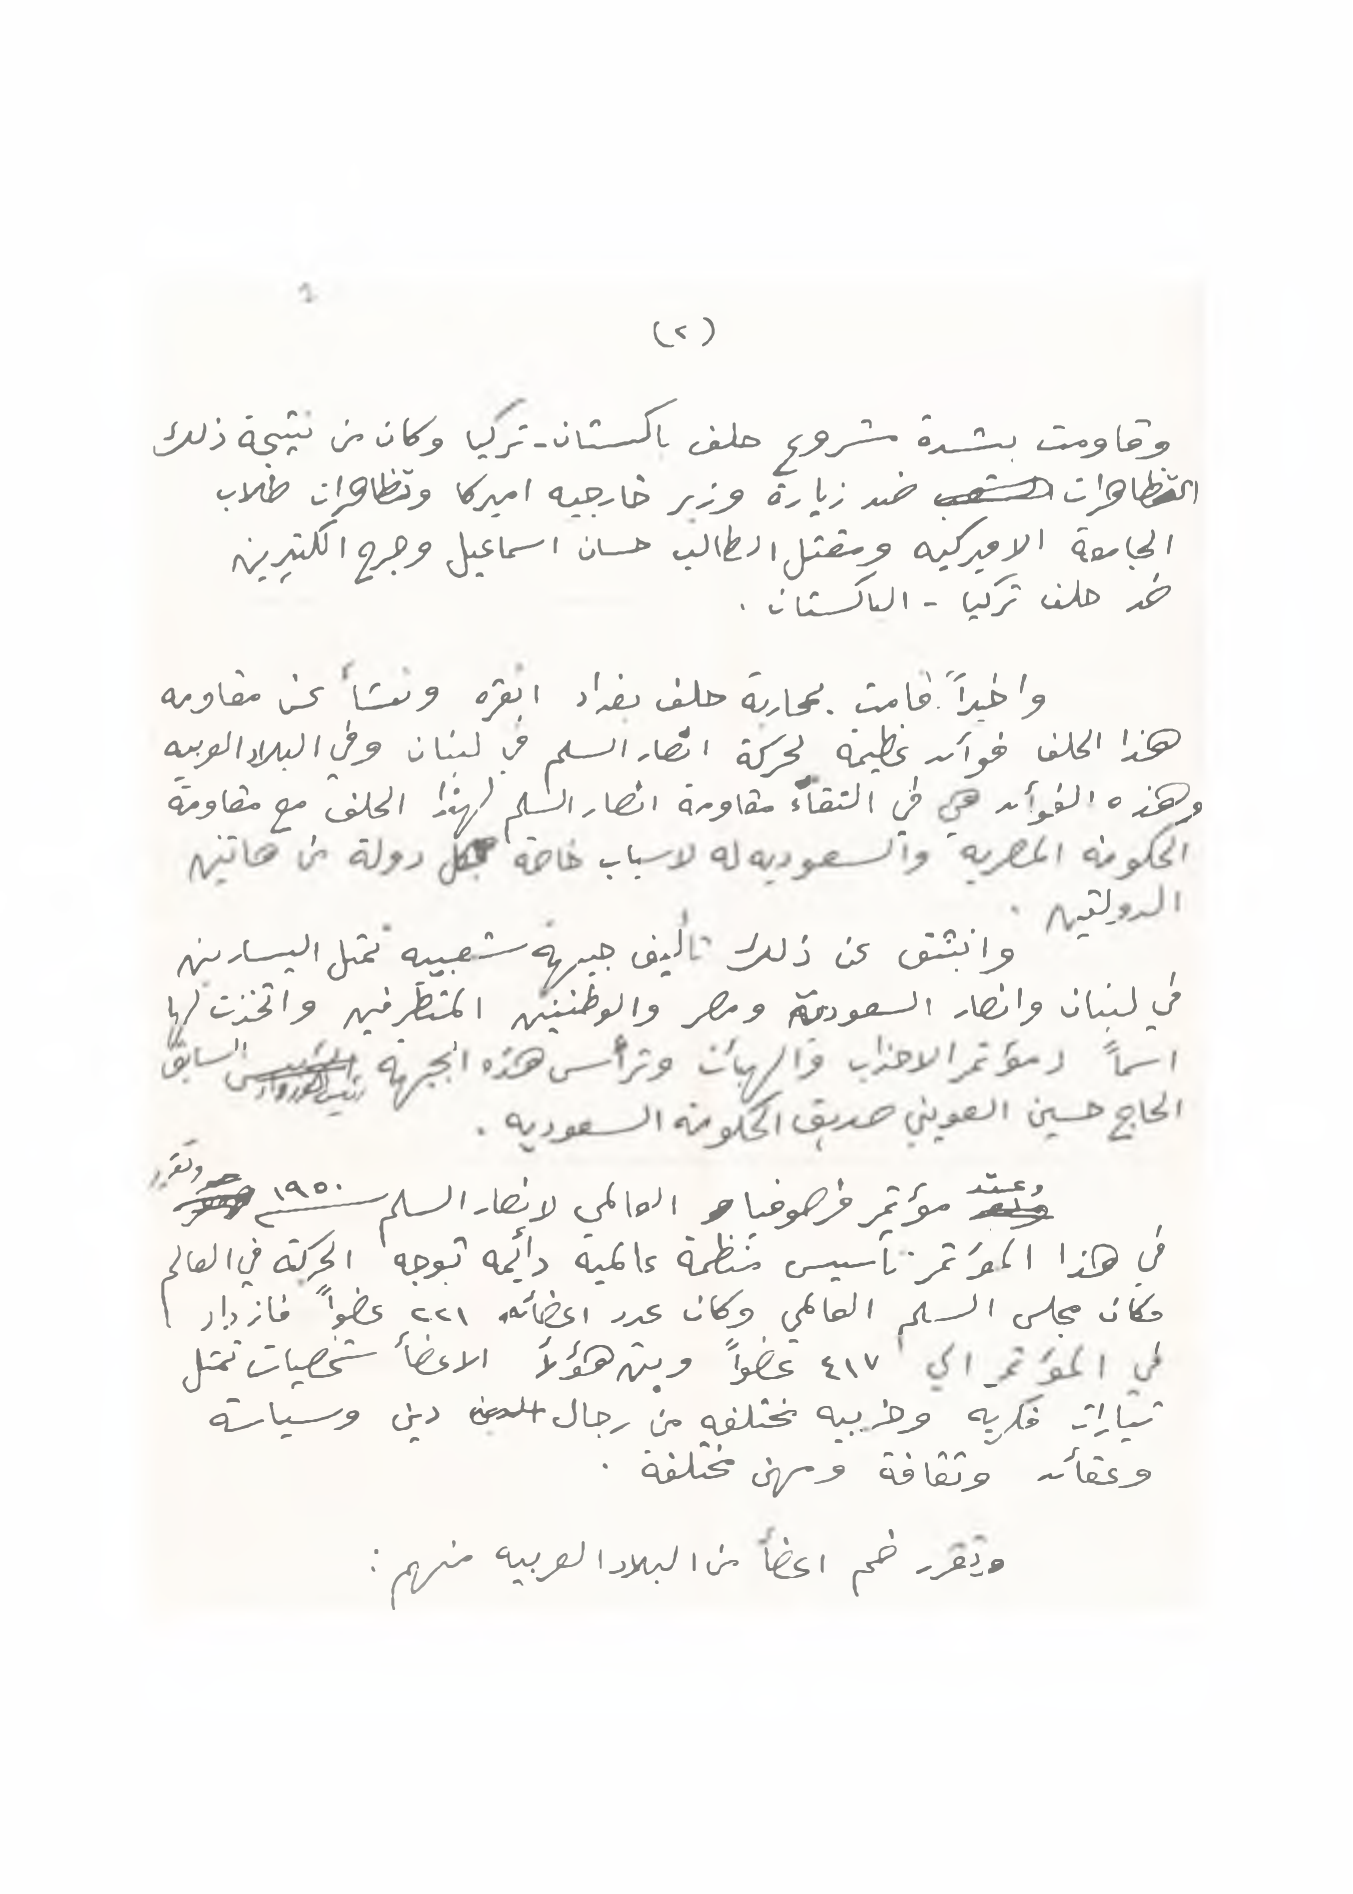 (٢)
وقاومت بشدة مشروع حلف باكستان - تركيا وكان من نتيجة ذلك
التظاهرات ضد زيارة وزير خارجيه اميركا وتظاهرات طلاب
الجامعة الاميركيه ومقتل الطالب حسان اسماعيل وجرح الكثيرين
ضد حلف تركيا - الباكستان .
واخيراً قامت بمحاربة حلف بغداد انقره ونشأ عن مقاومه
هذا الحلف فوائد عظيمة لحركة انصار السلم في لبنان وفي البلاد العربيه
وهذه الفوائد هي في التقاء مقاومة انصار السلم لهذا الحلف مع مقاومة
الحكومه المصريه والسعوديه له لاسباب خاصة بكل دولة من هاتين
الدولتين .
وانبثق عن ذلك تأليف جبهة شعبيه تمثل اليساريين
في لبنان وانصار السعودية ومصر والوطنيين المتطرفين واتخذت لها
اسماً لمؤتمر الاحزاب والهيأت وترأس هذه الجبهه رئيس الوزراء السابق
الحاج حسين العويني صديق الحكومه السعوديه .
وعقد مؤتمر فرصوفيا العالمي لانصار السلم سنة ١٩٥٠ وتقرر
في هذا المؤتمر تأسيس منظمة عالمية دائمه توجه الحركة في العالم
وكان مجلس السلم العالمي وكان عدد اعضائه ٢٢١ عضواً فازداد
في المؤتمر الى ٤١٧ عضواً وبين هؤلأ الاعضأ شخصيات تمثل
تيارات فكريه وحزبيه مختلفه من رجال دين وسياسة
وعقائد وثقافة ومهن مختلفة .
وتقرر ضم اعضأ من البلاد العربيه منهم :